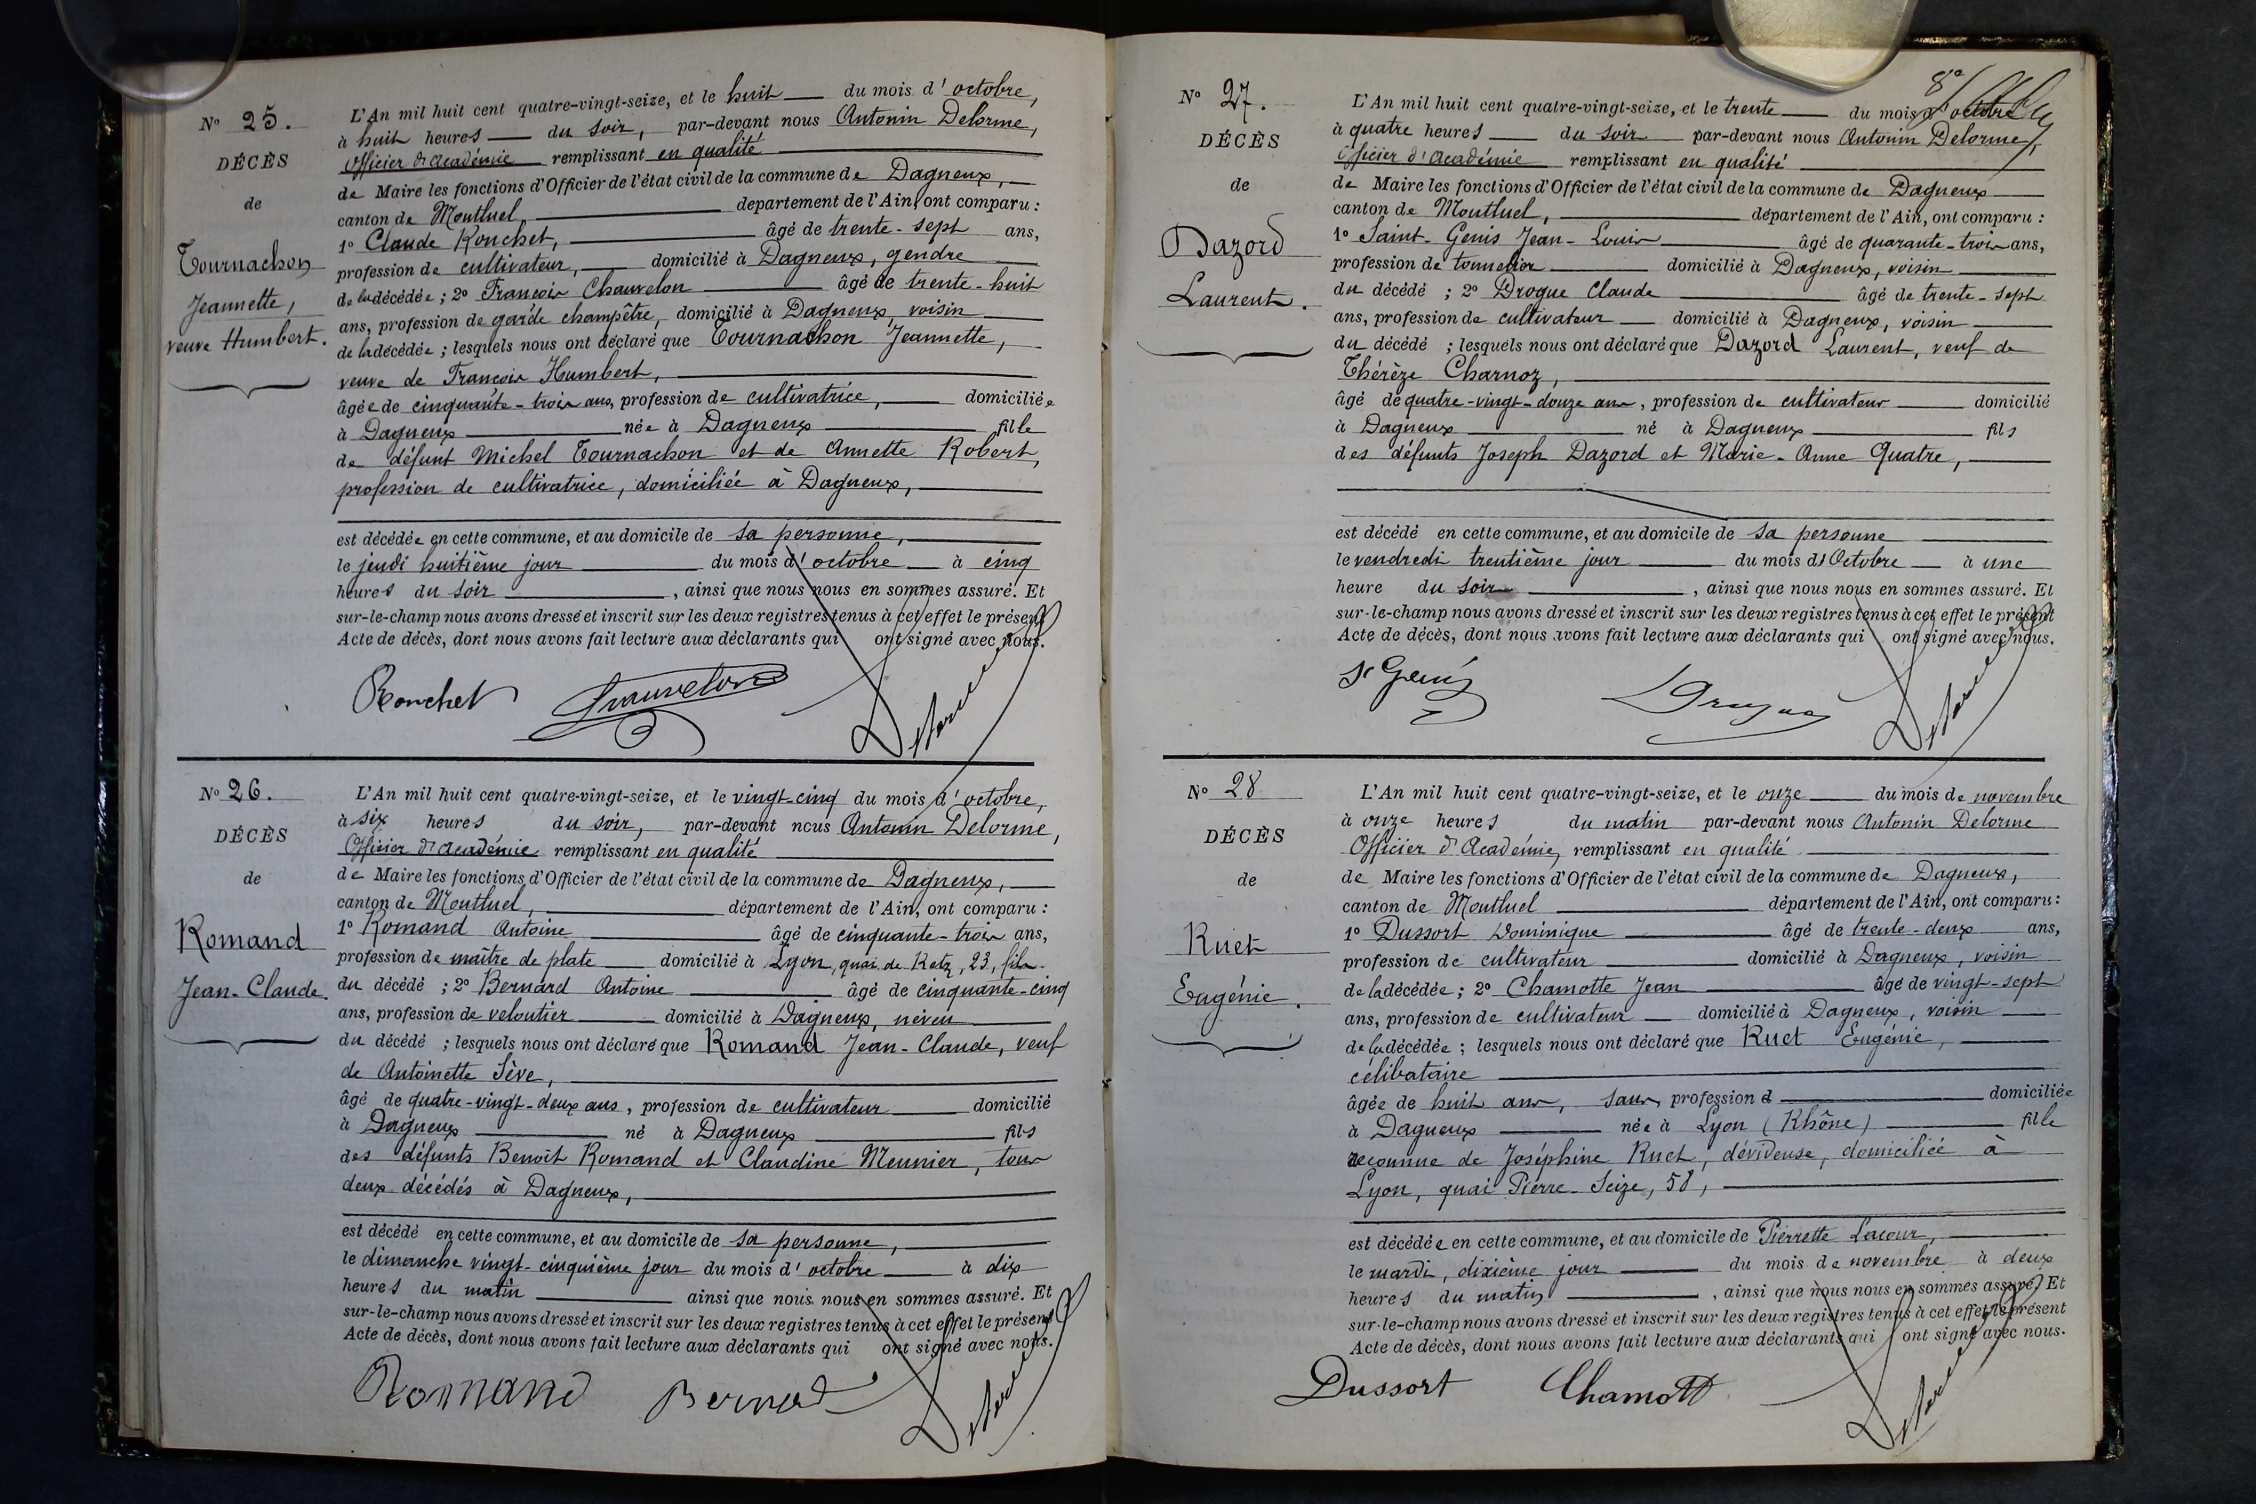 N° 25.
DÉCÈS
de
Tournachon
Jeannette,
veuve Humbert.
L'An mil huit cent quatre-vingt-seize, et le huit du mois d'octobre,
à huit heures du soir, par-devant nous Antonin Delorme,
Officier d'Académie remplissant en qualité
de Maire les fonctions d'Officier de l'état civil de la commune de Dagneux,
canton de Montluel, département de l'Ain, ont comparu :
1° Claude Ronchet, âgé de trente-sept ans,
profession de cultivateur, domicilié à Dagneux, gendre
de la décédée ; 2° François Chauvelon âgé de trente-huit
ans, profession de garde champêtre, domicilié à Dagneux, voisin
de la décédée ; lesquels nous ont déclaré que Tournachon Jeannette,
veuve de François Humbert,
âgée de cinquante-trois ans, profession de cultivatrice, domiciliée
à Dagneux née à Dagneux fille
de défunt Michel Tournachon et de Annette Robert,
profession de cultivatrice, domiciliée à Dagneux,
est décédée en cette commune, et au domicile de sa personne,
le jeudi huitième jour du mois d'octobre à cinq
heures du soir, ainsi que nous nous en sommes assuré. Et
sur-le-champ nous avons dressé et inscrit sur les deux registres tenus à cet effet le présent
Acte de décès, dont nous avons fait lecture aux déclarants qui ont signé avec nous.
Ronchet Chauvelon Delorme
N° 26.
DÉCÈS
de
Romand
Jean-Claude.
L'An mil huit cent quatre-vingt-seize, et le vingt-cinq du mois d'octobre,
à six heures du soir, par-devant nous Antonin Delorme,
Officier d'Académie remplissant en qualité
de Maire les fonctions d'Officier de l'état civil de la commune de Dagneux,
canton de Montluel, département de l'Ain, ont comparu :
1° Romand Antoine âgé de cinquante-trois ans,
profession de maître de plate domicilié à Lyon, quai de Retz, 23, fils
du décédé ; 2° Bernard Antoine âgé de cinquante-cinq
ans, profession de veloutier domicilié à Dagneux, neveu
du décédé ; lesquels nous ont déclaré que Romand Jean-Claude, veuf
de Antoinette Sève,
âgé de quatre-vingt-deux ans, profession de cultivateur domicilié
à Dagneux né à Dagneux fils
des défunts Benoît Romand et Claudine Meunier, tous
deux décédés à Dagneux,
est décédé en cette commune, et au domicile de sa personne,
le dimanche vingt-cinquième jour du mois d'octobre à dix
heures du matin ainsi que nous nous en sommes assuré. Et
sur-le-champ nous avons dressé et inscrit sur les deux registres tenus à cet effet le présent
Acte de décès, dont nous avons fait lecture aux déclarants qui ont signé avec nous.
Romand Bernard Delorme
8e
N° 27.
DÉCÈS
de
Dazord
Laurent.
L'An mil huit cent quatre-vingt-seize, et le trente du mois d'octobre
à quatre heures du soir par-devant nous Antonin Delorme,
Officier d'Académie remplissant en qualité
de Maire les fonctions d'Officier de l'état civil de la commune de Dagneux
canton de Montluel, département de l'Ain, ont comparu :
1° Saint-Genis Jean-Louis âgé de quarante-trois ans,
profession de tonnelier domicilié à Dagneux, voisin
du décédé ; 2° Drogue Claude âgé de trente-sept
ans, profession de cultivateur domicilié à Dagneux, voisin
du décédé ; lesquels nous ont déclaré que Dazord Laurent, veuf de
Thérèze Charnoz,
âgé de quatre-vingt-douze ans, profession de cultivateur domicilié
à Dagneux né à Dagneux fils
des défunts Joseph Dazord et Marie-Anne Quatre,
est décédé en cette commune, et au domicile de sa personne
le vendredi trentième jour du mois d'Octobre à une
heure du soir, ainsi que nous nous en sommes assuré. Et
sur-le-champ nous avons dressé et inscrit sur les deux registres tenus à cet effet le présent
Acte de décès, dont nous avons fait lecture aux déclarants qui ont signé avec nous.
St Genis Drogue Delorme
N° 28
DÉCÈS
de
Ruet
Eugénie.
L'An mil huit cent quatre-vingt-seize, et le onze du mois de novembre
à onze heures du matin par-devant nous Antonin Delorme
Officier d'Académie, remplissant en qualité
de Maire les fonctions d'Officier de l'état civil de la commune de Dagneux,
canton de Montluel département de l'Ain, ont comparu :
1° Dussort Dominique âgé de trente-deux ans,
profession de cultivateur domicilié à Dagneux, voisin
de la décédée ; 2° Chamotte Jean âgé de vingt-sept
ans, profession de cultivateur domicilié à Dagneux, voisin
de la décédée ; lesquels nous ont déclaré que Ruet Eugénie,
célibataire
âgée de huit ans, sans profession d domiciliée
à Dagneux née à Lyon (Rhône) fille
reconnue de Joséphine Ruet, dévideuse, domiciliée à
Lyon, quai Pierre-Seize, 58,
est décédée en cette commune, et au domicile de Pierrette Lacour,
le mardi, dixième jour du mois de novembre à deux
heures du matin, ainsi que nous nous en sommes assuré. Et
sur-le-champ nous avons dressé et inscrit sur les deux registres tenus à cet effet le présent
Acte de décès, dont nous avons fait lecture aux déclarants qui ont signé avec nous.
Dussort Chamott Delorme